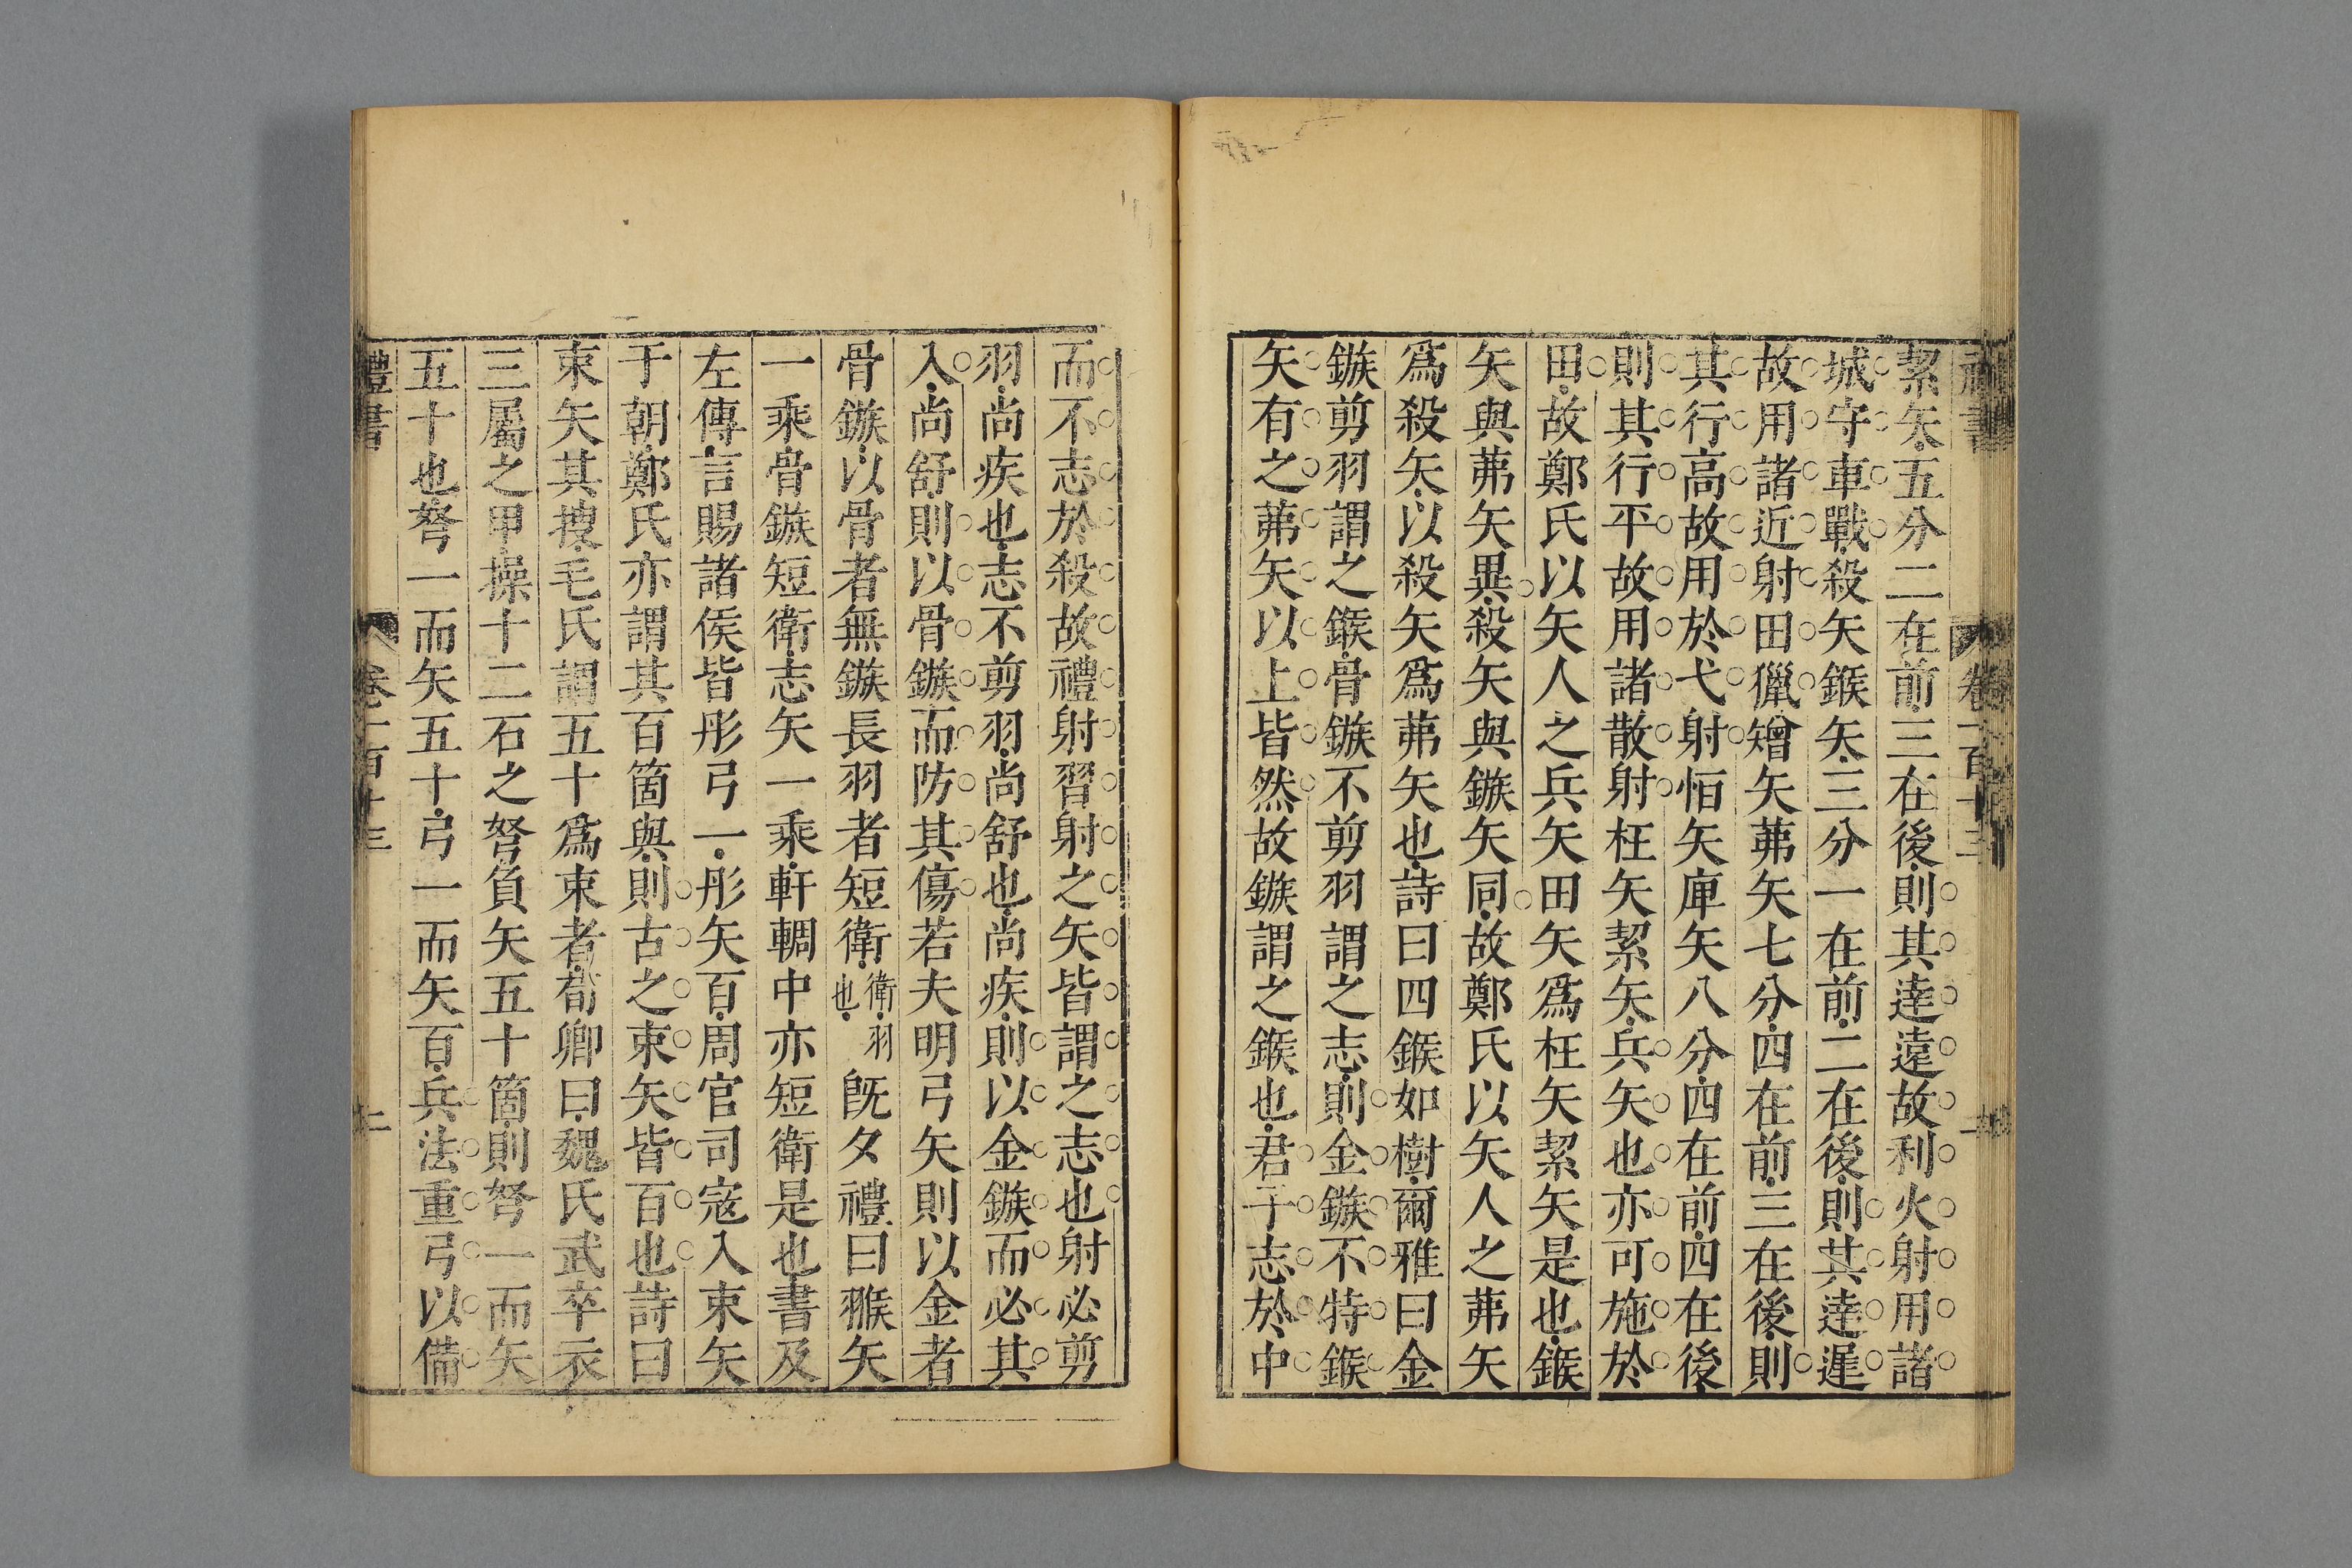 禮書 卷一百十三
絜矢五分二在前三在後則其達遠故利火射用諸
城守車戰殺矢鍭矢三分一在前二在後則其達遲
故用諸近射田獵矰矢茀矢七分四在前三在後則
其行高故用於弋射恒矢庳矢八分四在前四在後
則其行平故用諸散射枉矢絜矢兵矢也亦可施於
田故鄭氏以矢人之兵矢田矢爲枉矢絜矢是也鍭
矢與茀矢異殺矢與鏃矢同故鄭氏以矢人之茀矢
爲殺矢以殺矢爲茀矢也詩曰四鍭如樹爾雅曰金
鏃剪羽謂之鍭骨鏃不剪羽謂之志則金鏃不特鍭
矢有之茀矢以上皆然故鏃謂之鍭也君子志於中
而不志於殺故禮射習射之矢皆謂之志也射必剪
羽尚疾也志不剪羽尚舒也尚疾則以金鏃而必其
入尚舒則以骨鏃而防其傷若夫明弓矢則以金者
骨鏃以骨者無鏃長羽者短衛衛羽也旣夕禮曰翭矢
一乘骨鏃短衛志矢一乘軒輖中亦短衛是也書及
左傳言賜諸侯皆彤弓一彤矢百周官司寇入束矢
于朝鄭氏亦謂其百箇與則古之束矢皆百也詩曰
束矢其搜毛氏謂五十爲束者荀卿曰魏氏武卒衣
三屬之甲操十二石之弩負矢五十箇則弩一而矢
五十也弩一而矢五十弓一而矢百兵法重弓以備
禮書 卷一百十三